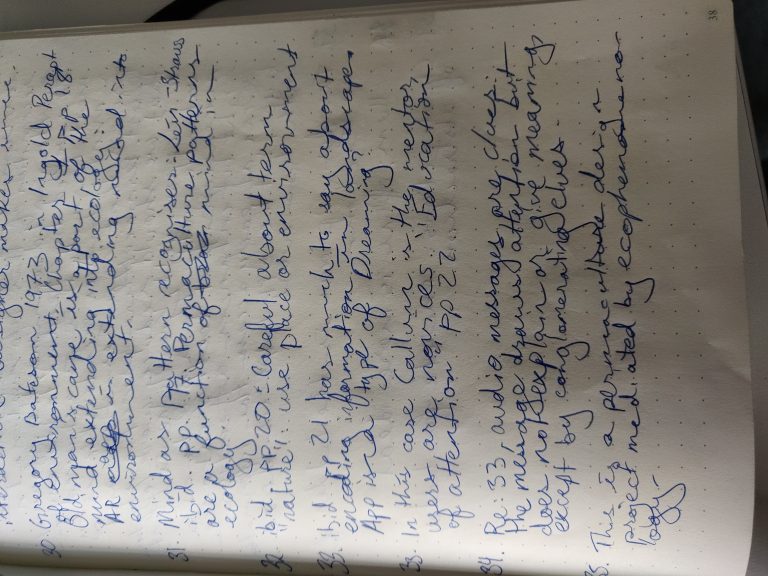 30. Gregory Bateson 1973 in Ingold Percept
of environment. Chapter 1 PP 18.
Old man's cane is a part of the
mind extending into ecology.
AR is extending mind into
environment.
31. Mind as Pattern recogniser. Levi-Strauss
ibid. PP. Permaculture patterns
are a function of mind in
ecology
32. ibid PP 20: Careful about term
"nature": use place or environment
33. ibid PP 21 has much to say about
encoding information in landscape.
App is a type of Dreaming?
33. In this case Callum is the mentor,
users are novices. "Education
of attention" PP 22
34. Re: 33 audio messages are clues:
the message draws attention but
does not explain or give meaning
except by conglomerating clues.
35. This is a permaculture design
project mediated by ecophenomeno-
logy.
38